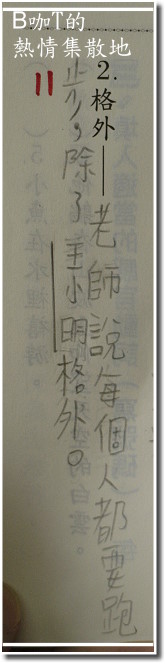 B咖T的
熱情集散地
2.格外——老師說每個人都要跑
步，除了王小明格外。
11